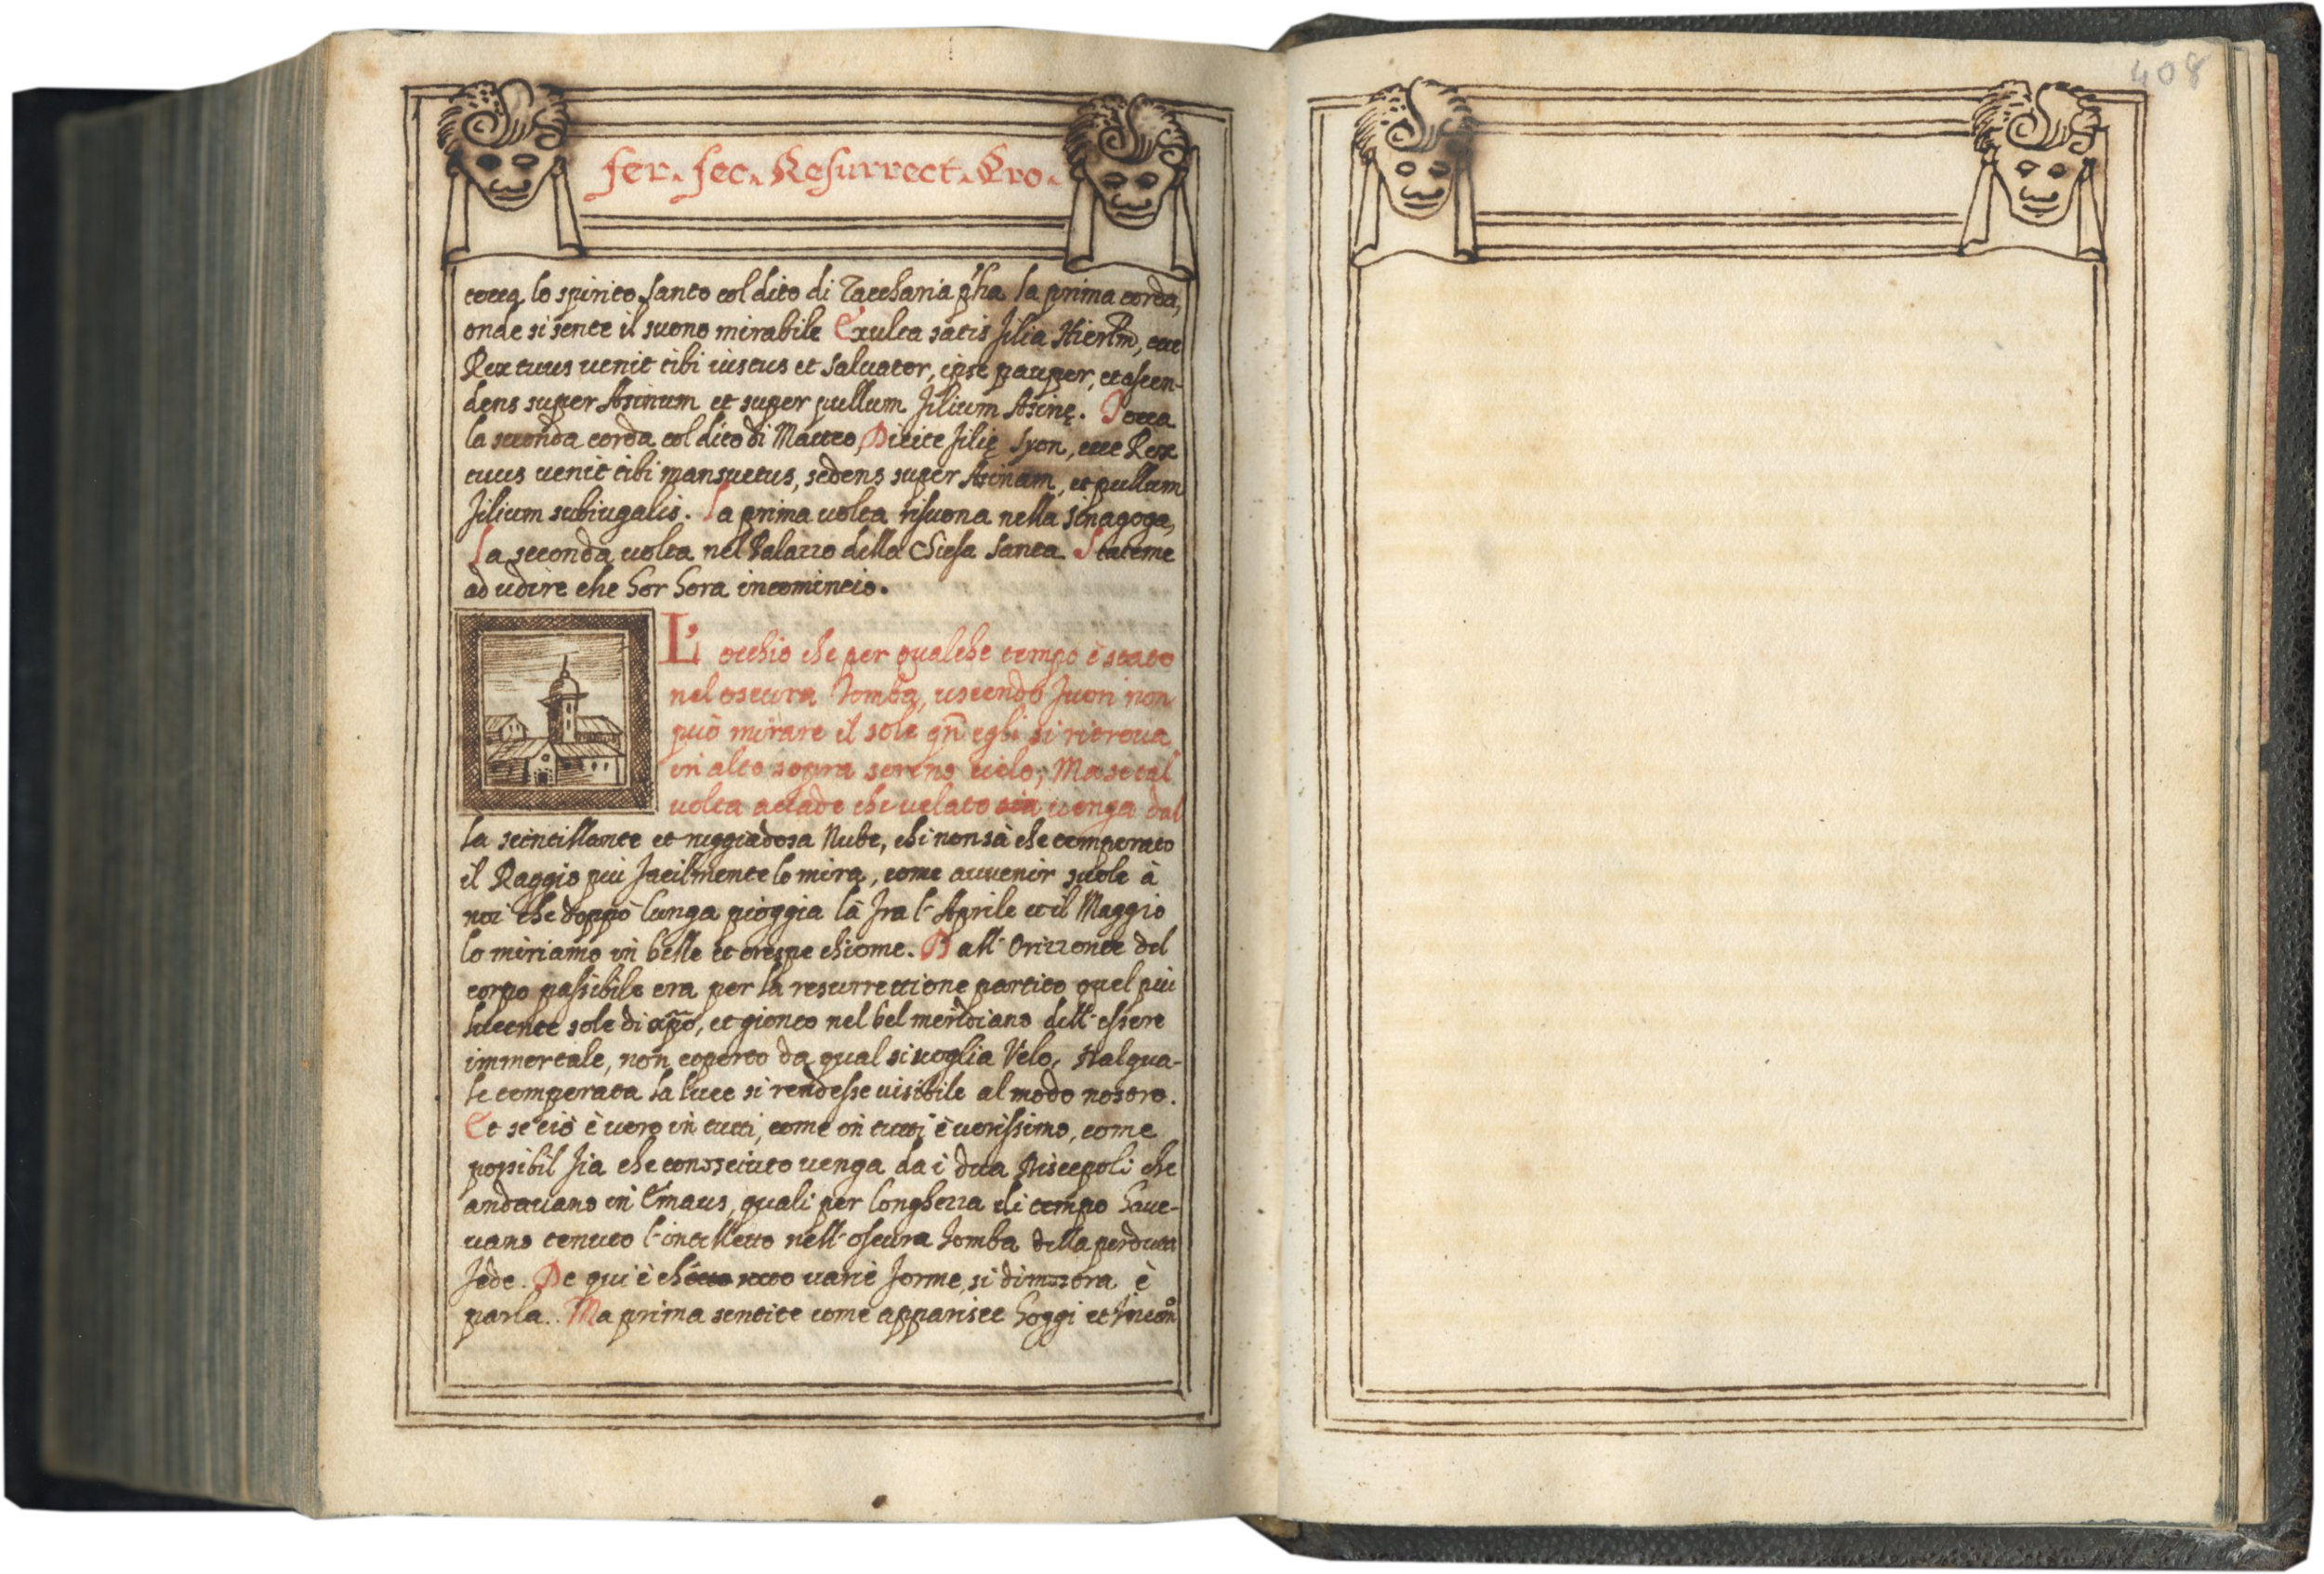 fer. sec. Resurrect. Pro.
tocca lo spirito santo col dito di Zaccharia pha la prima corda,
onde si sente il suono mirabile Exulta satis filia Hierlm, ecce
Rex tuus uenit tibi iustus et saluator, ipse pauper, et ascen-
dens super Asinum et super pullum filium Asinę. Tocca
la seconda corda col dito di Matteo, Dicite filię Syon, ecce Rex
tuus uenit tibi mansuetus, sedens super Asinam, et pullum
filium subiugalis. La prima uolta risuona nella sinagoga,
La seconda uolta nel Palazzo della Chiesa santa. Stateme
ad udire che hor hora incomincio.
L'occhio che per qualche tempo è stato
nel oscura tomba, uscendo fuori non
può mirare il sole qn egli si ritroua
in alto sopra sereno cielo; Ma se tal
uolta accade che uelato uenga dal
la scintillante et ruggiadosa Nube, chi non sà che temperato
il Raggio più facilmente lo mira, come auuenir suole à
noi che doppò lunga pioggia là fra l'Aprile et il Maggio
lo miriamo in belle et crespe chiome. Dall'Orizzonte del
corpo passibile era per la resurrettione partito quel più
lucente sole di xpo, et gionto nel bel meridiano dell'essere
immortale, non coperto da qual si uoglia Velo, dal qua-
le temperata la luce si rendesse uisibile al modo nostro.
Et se ciò è uero in tutti, come in tutti è uerissimo, come
possibil fia che conosciuto uenga da i dua Discepoli che
andauano in Emaus, quali per longhezza di tempo haue-
uano tenuto l'intelletto nell'oscura tomba della perduta
fede. De qui è ch uarie forme, si dimostra è
parla. Ma prima sentite come apparisce hoggi et
408